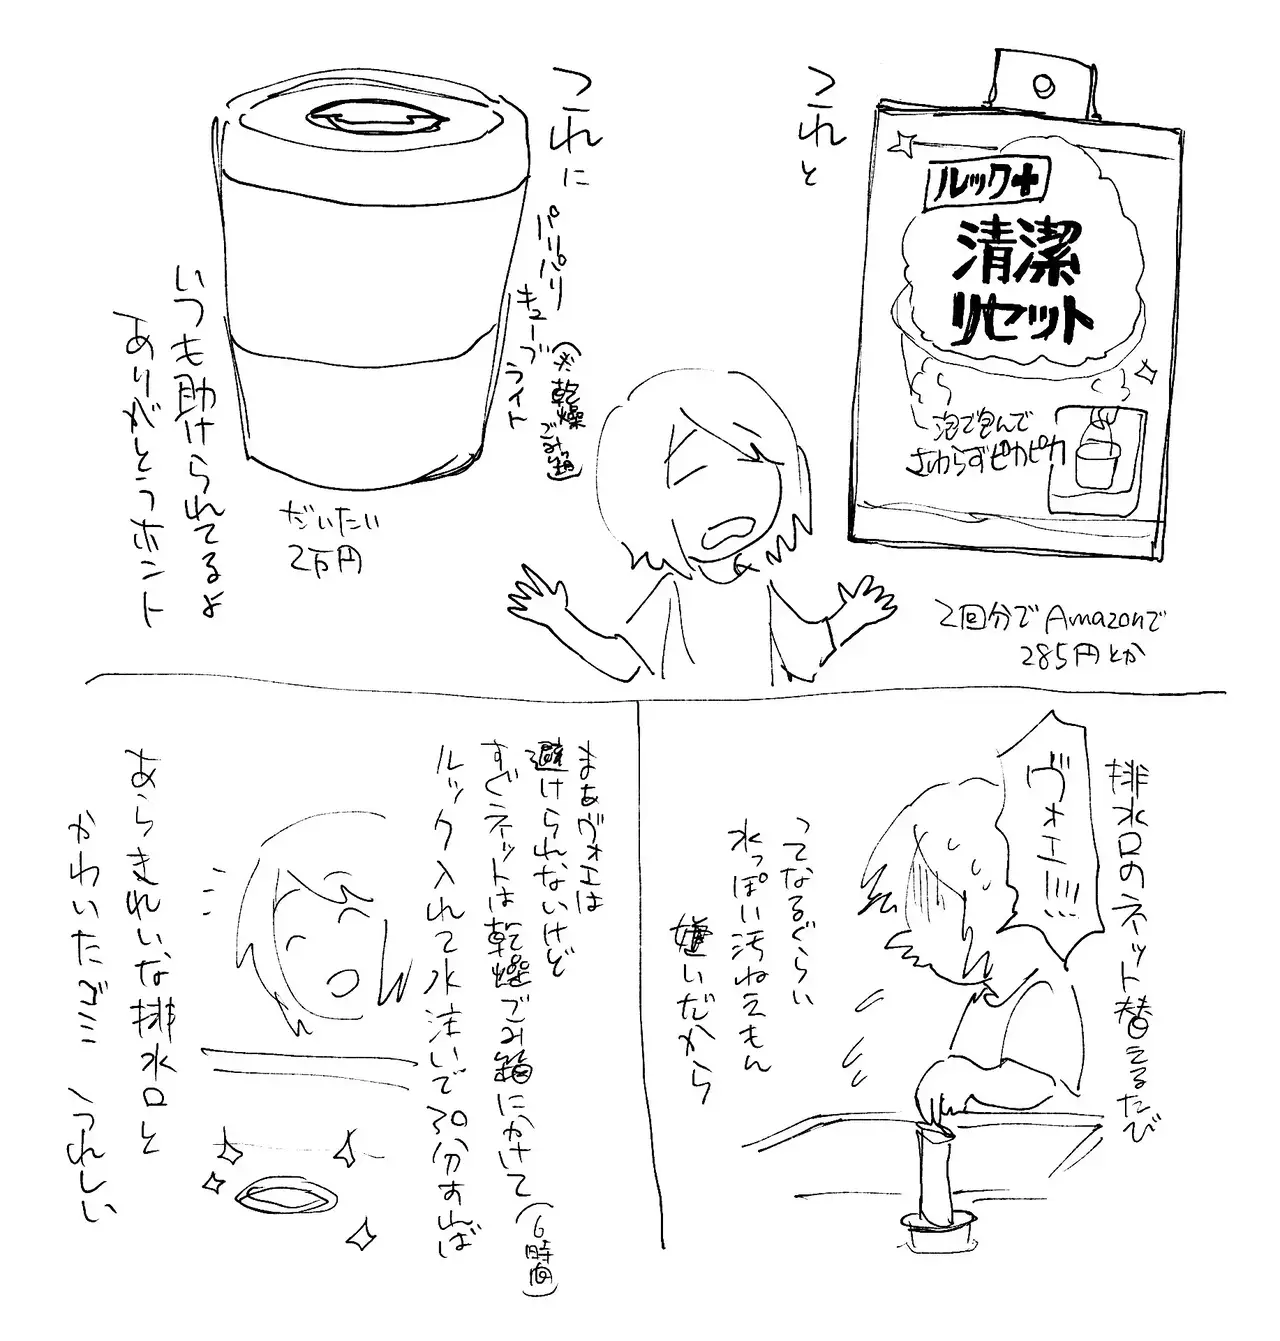 これと
ルック+
清潔
リセット
泡で包んで
さわらずピカピカ
2回分でAmazonで
285円とか
これに
パリパリ
キューブ
ライト
(※乾燥
ごみ箱)
だいたい
2万円
いつも助けられてるよ
ありがとうホント
排水口のネット替えるたび
ヴォエ!!!!
ってなるぐらい
水っぽい汚ねえもん
嫌いだから
まぁヴォエは
避けられないけど
すぐネットは乾燥ごみ箱にかけて(6時間)
ルック入れて水注いで30分すれば
あらきれいな排水口と
かわいたゴミ うれしい